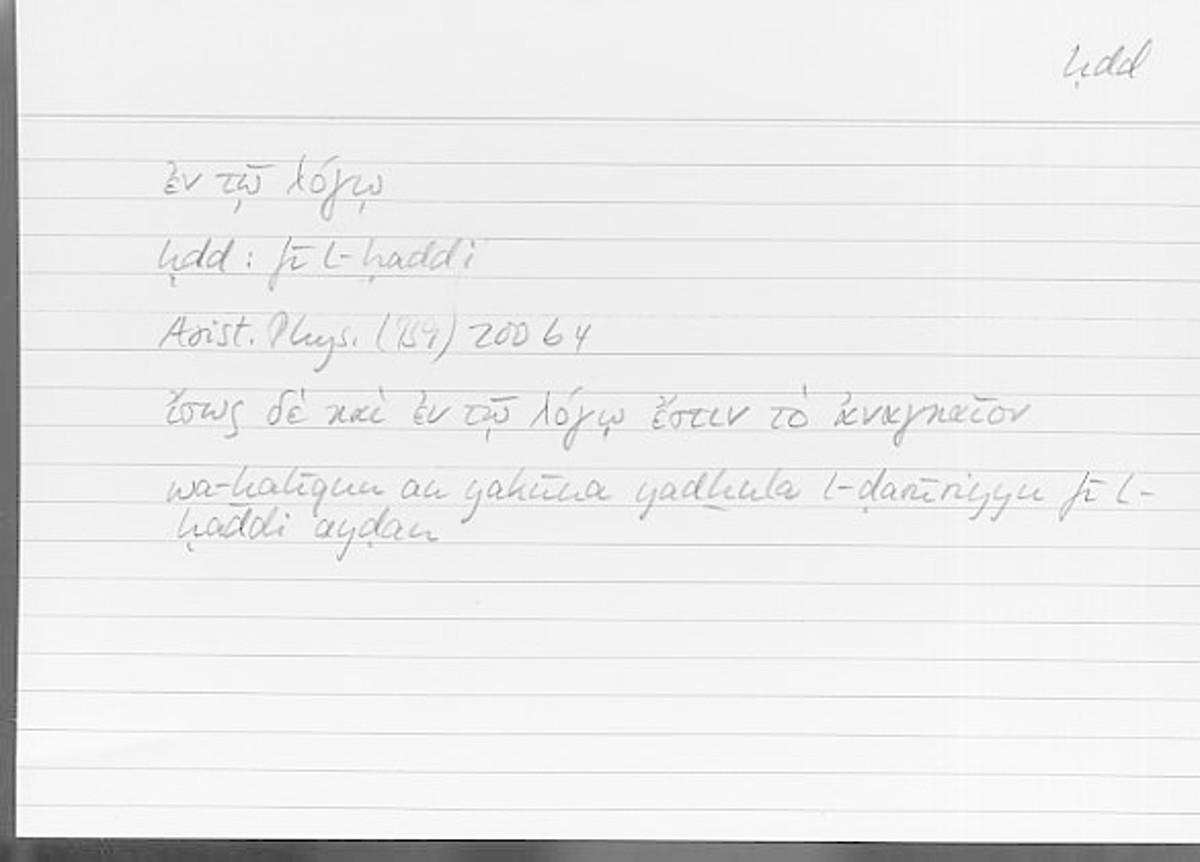 ḥdd
ἐν τῷ λόγῳ
ḥdd : fī l-ḥaddi
Arist. Phys. (II 9) 200 b 4
ἴσως δὲ καὶ ἐν τῷ λόγῳ ἔστιν τὸ ἀναγκαῖον
wa-ḫalīqun an yakūna yadḫula l-ḍarūriyyu fī l-
ḥaddi ayḍan